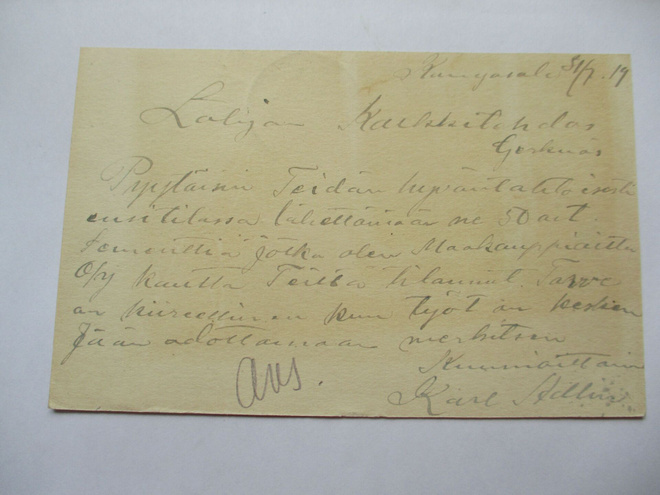 Kangasala 31/7 19
Lohjan Kalkkitehdas
Gerknäs
Pyytäisin Teidän hyväntahtoisesti
ensi tilassa lähettämään ne 50 ast.
sementtiä jotka olen Maakauppiaitten
O/y kautta Teiltä tilannut. Tarve
on kiireellinen kun työt on kesken
Jään odottamaan
Kunnioittaen
Karl
ans.